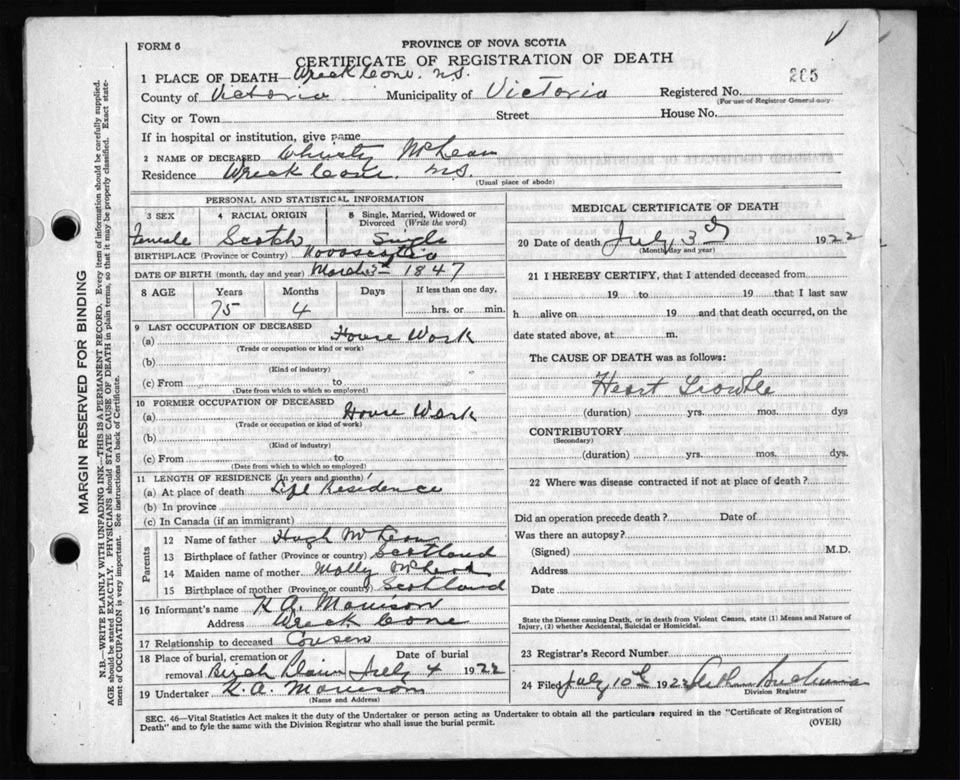 FORM 6
PROVINCE OF NOVA SCOTIA
CERTIFICATE OF REGISTRATION OF DEATH
1 PLACE OF DEATH—Wreck Cove. N.S.
265
County of Victoria Municipality of Victoria Registered No.
(For use of Registrar General only)
City or Town Street House No.
If in hospital or institution, give name
2 NAME OF DECEASED Christy McLean
Residence Wreck Cove. N.S.
(Usual place of abode)
PERSONAL AND STATISTICAL INFORMATION
3 SEX 4 RACIAL ORIGIN 5 Single, Married, Widowed or Divorced (Write the word)
Female Scotch Single
BIRTHPLACE (Province or Country) Novascotia
DATE OF BIRTH (month, day and year) March 3rd 1847
8 AGE Years Months Days If less than one day,
75 4 hrs. or min.
9 LAST OCCUPATION OF DECEASED
(a) House Work
(Trade or occupation or kind or work)
(b)
(Kind of industry)
(c) From to
(Date from which to which so employed)
10 FORMER OCCUPATION OF DECEASED
(a) House Work
(Trade or occupation or kind of work)
(b)
(Kind of industry)
(c) From to
(Date from which to which so employed)
11 LENGTH OF RESIDENCE (In years and months)
(a) At place of death Life Residence
(b) In province
(c) In Canada (if an immigrant)
Parents
12 Name of father Hugh McLean
13 Birthplace of father (Province or country) Scotland
14 Maiden name of mother Molly
15 Birthplace of mother (Province or country) Scotland
16 Informant's name K. A. Morrison
Address Wreck Cove
17 Relationship to deceased Cousen
18 Place of burial, cremation or removal Date of burial
Birch Plain July 4 1922
19 Undertaker K. A. Morrison
(Name and Address)
MEDICAL CERTIFICATE OF DEATH
20 Date of death July 3 1922
(Month, day and year)
21 I HEREBY CERTIFY, that I attended deceased from
19 to 19 that I last saw
h alive on 19 and that death occurred, on the
date stated above, at m.
The CAUSE OF DEATH was as follows:
Heart Trowble
(duration) yrs. mos. dys
CONTRIBUTORY
(Secondary)
(duration) yrs. mos. dys.
22 Where was disease contracted if not at place of death?
Did an operation precede death? Date of
Was there an autopsy?
(Signed) M.D.
Address
Date
State the Disease causing Death, or in death from Violent Causes, state (1) Means and Nature of
Injury, (2) whether Accidental, Suicidal or Homicidal.
23 Registrar's Record Number
24 Filed July 10th 1922
Division Registrar
SEC. 46—Vital Statistics Act makes it the duty of the Undertaker or person acting as Undertaker to obtain all the particulars required in the "Certificate of Registration of
Death" and to fyle the same with the Division Registrar who shall issue the burial permit.
(OVER)
MARGIN RESERVED FOR BINDING
N.B.—WRITE PLAINLY WITH UNFADING INK—THIS IS A PERMANENT RECORD. Every item of information should be carefully supplied.
AGE should be stated EXACTLY. PHYSICIANS should STATE CAUSE OF DEATH in plain terms, so that it may be properly classified. Exact state-
ment of OCCUPATION is very important. See instructions on back of Certificate.